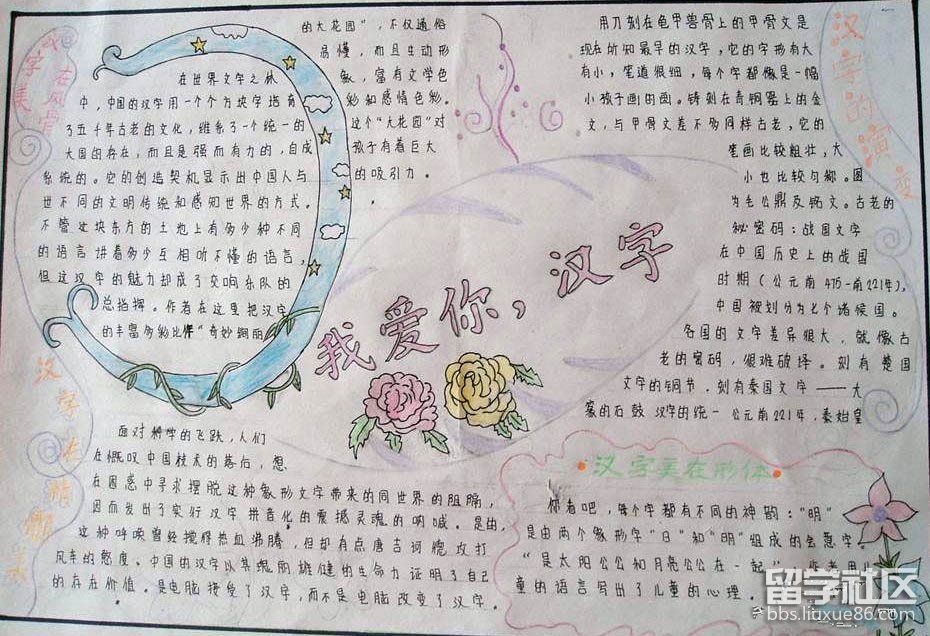 在世界文字之林
中，中国的汉字用一个个方块字培育
了五千年古老的文化，维系了一个统一的
大国的存在，而且是强而有力的，自成
系统的。它的创造契机显示出中国人与
世不同的文明传统和感知世界的方式。
不管这块东方的土地上有多少种不同
的语言讲着多少互相听不懂的语言，
但这汉字的魅力却成了交响乐队的
总指挥。作者在这里把汉字
的丰富多彩比作“奇妙绚丽
的大花园”，不仅通俗
易懂，而且生动形
象，富有文学色
彩和感情色彩。
这个“大花园”对
孩子有着巨大
的吸引力。
用刀刻在龟甲兽骨上的甲骨文是
现在所知最早的汉字，它的字形有大
有小，笔道很细，每个字都像是一幅
小孩子画的画。铸刻在青铜器上的金
文，与甲骨文差不多同样古老，它的
笔画比较粗壮，大
小也比较匀称。图
为毛公鼎及铭文。古老的
秘密码：战国文字
在中国历史上的战国
时期（公元前475-前221年），
中国被划分为七个诸侯国。
各国的文字差异很大，就像古
老的密码，很难破译。刻有楚国
文字的铜节．刻有秦国文字——大
篆的石鼓 汉字的统一 公元前221年，秦始皇
汉字的演变
我爱你，汉字
面对科学的飞跃，人们
在慨叹中国技术的落后，想
在困惑中寻求摆脱这种象形文字带来的同世界的阻隔，
因而发出了实行汉字拼音化的震撼灵魂的呐喊。是的，
这种呼唤曾经搅得热血沸腾，但却有点唐吉诃德攻打
风车的憨度。中国的汉字以其瑰丽雄健的生命力证明了自己
的存在价值。是电脑接受了汉字，而不是电脑改变了汉字。
汉字美在形体
你看吧，每个字都有不同的神韵：“明”
是由两个象形字“日”和“明”组成的会意字。
“是太阳公公和月亮公公在一起”
童的语言写出了儿童的心理。
留学社区
bbs.liuxue86.com